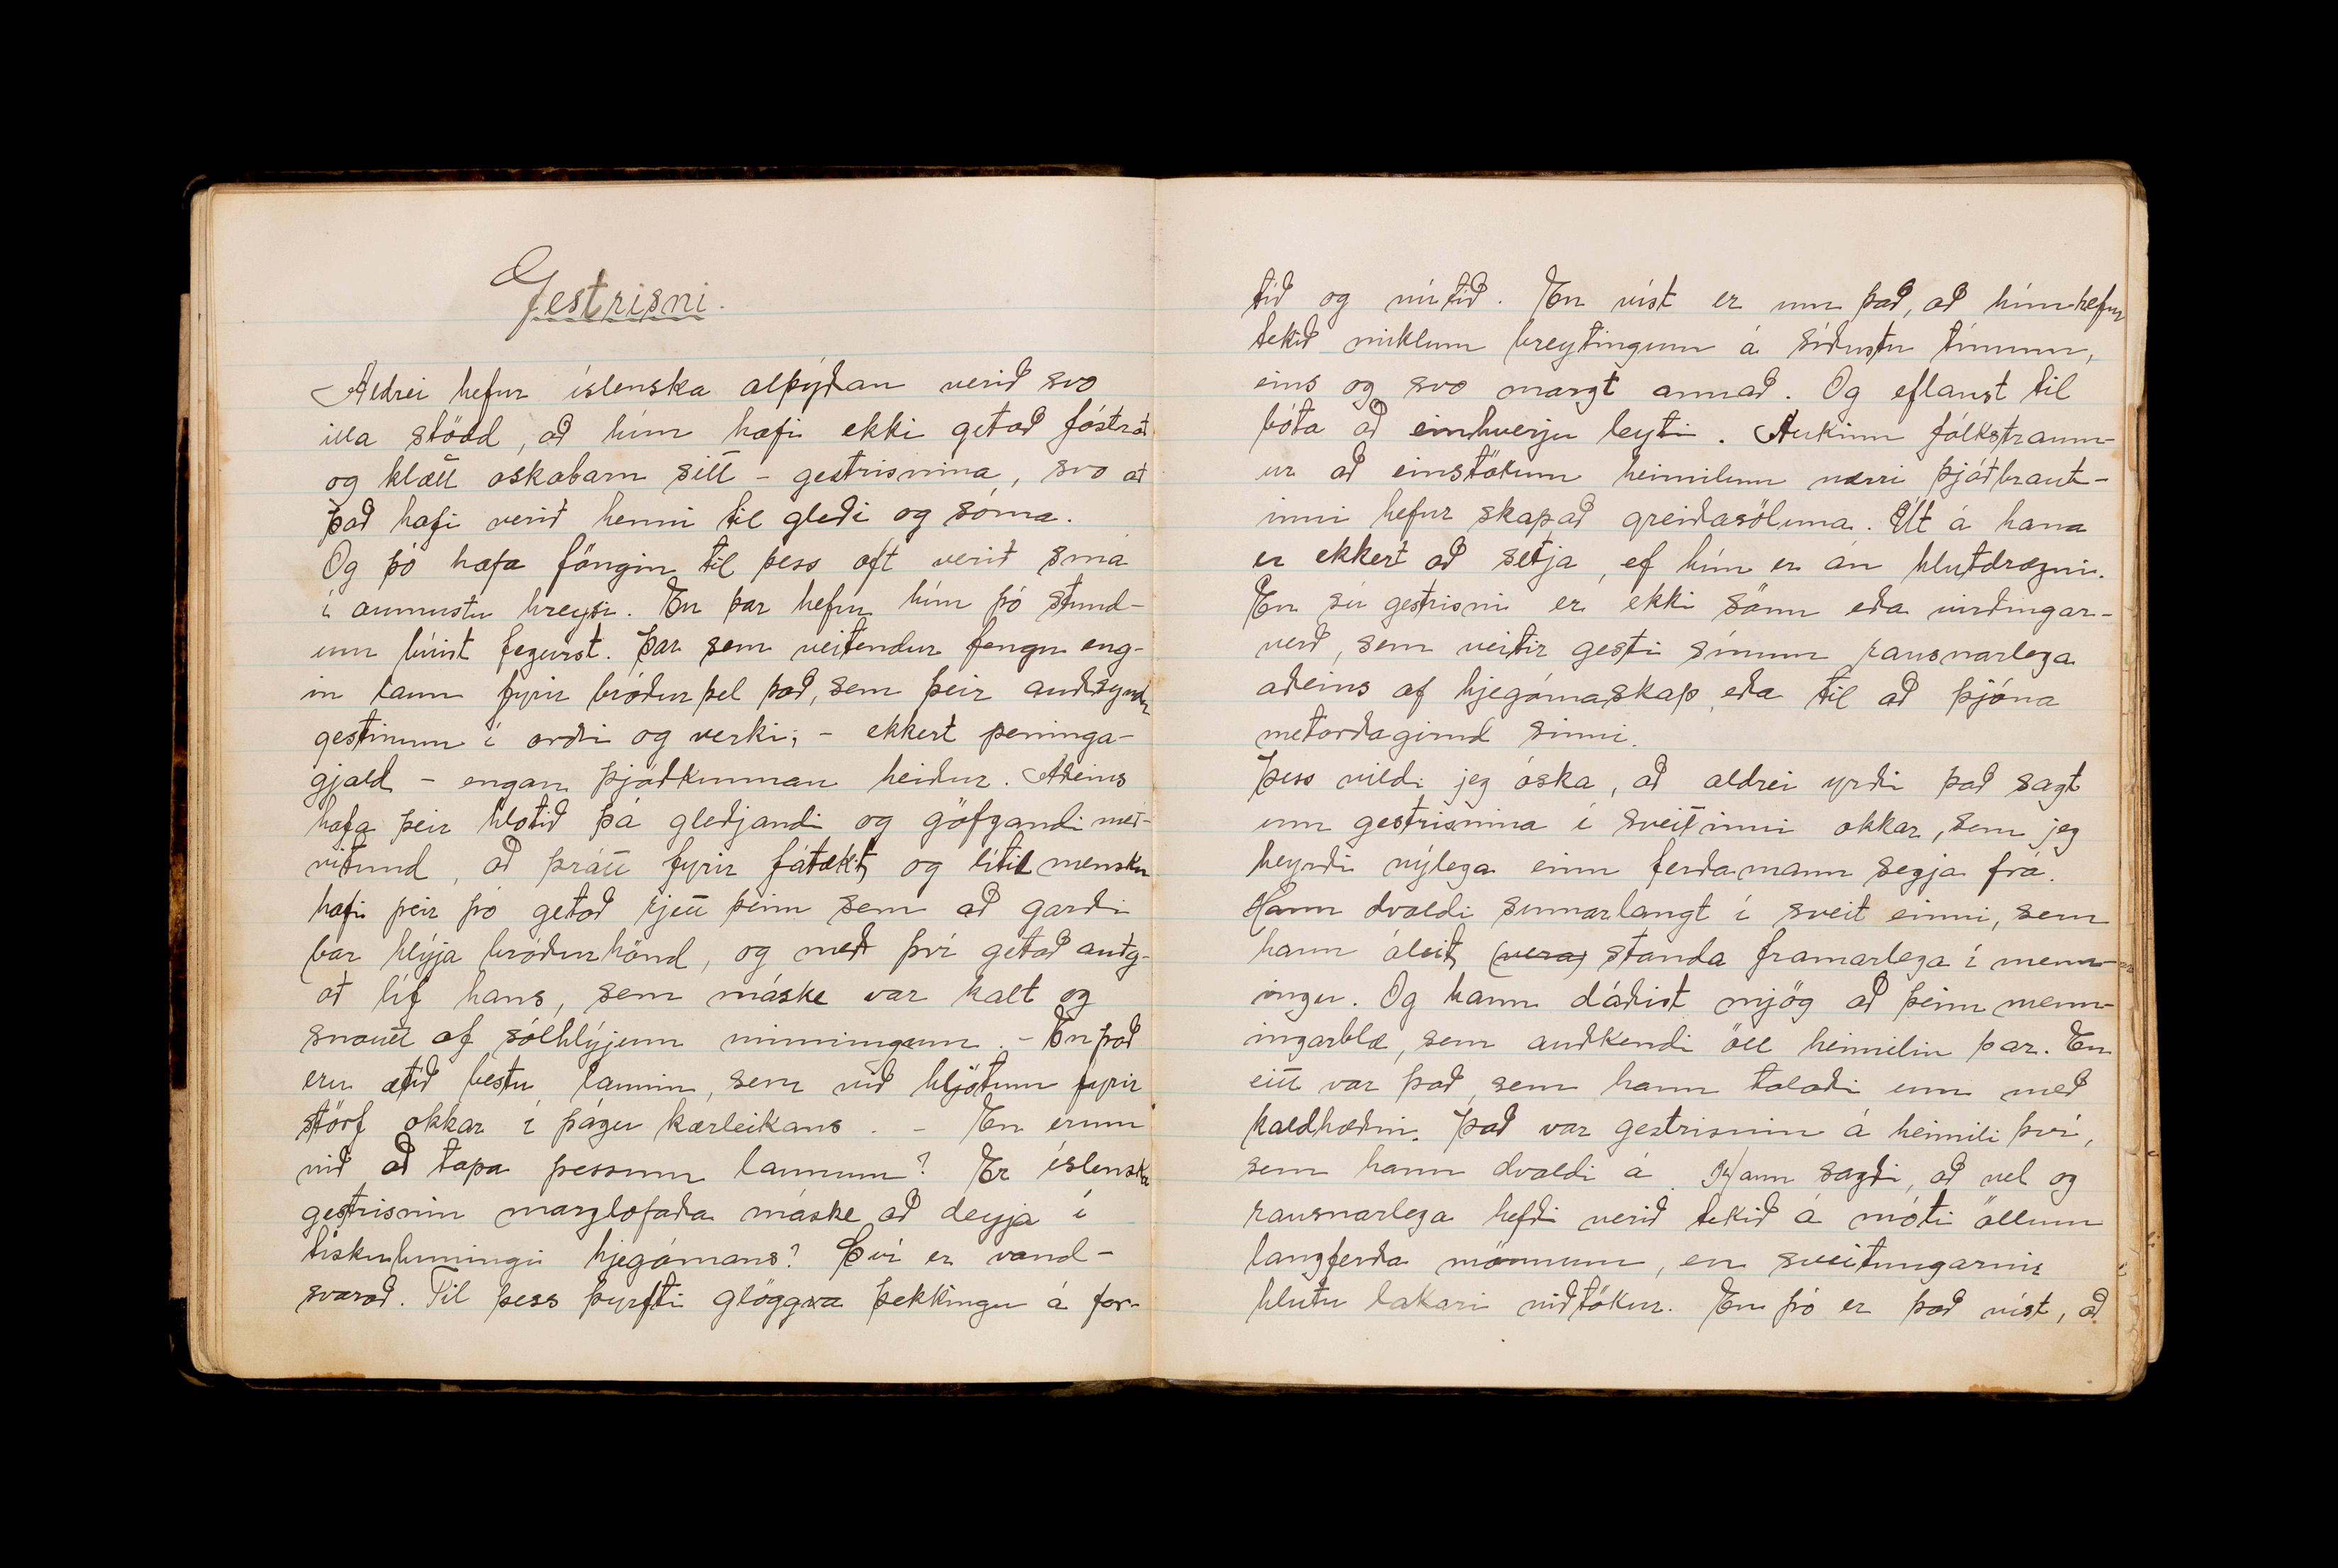 Gestrisni.
Aldrei hefur íslenska alþýðan verið svo
illa stödd, að hún hafi ekki getað fóstrað
og klætt óskabarn sitt - gestrisnina, svo að
það hafi verið henni til gleði og sóma.
Og þó hafa föngin til þess oft verið smá
í aumustu hreysi. En þar hefur hún þó stund-
um búist fegurst. Þar sem veitendur fengu eng-
in laun fyrir bróðurþel það, sem þeir auðsýndu
gestinum í orði og verki; - ekkert peninga-
gjald - engan þjóðkunnan heiður. Aðeins
hafa þeir hlotið þá gleðjandi og göfgandi með-
vitund, að þrátt fyrir fátækt og lítilmensku
hafi þeir þó getað rjett þeim sem að garði
bar hlýja bróðurhönd, og með því getað auðg-
að líf hans, sem máske var kalt og
snautt af sólhlýjum minningum. - En það
eru ætíð bestu launin, sem við hljótum fyrir
störf okkar í þágu kærleikans. - En erum
við að tapa þessum launum? Er íslenska
gestrisnin marglofaða máske að deyja í
tískubúningi hjegómans? Því er vand-
svarað. Til þess þyrfti glöggva þekkingu á for-
tíð og nútíð. En víst er um það, að hún hefur
tekið miklum breytingum á síðustu tímum,
eins og svo margt annað. Og eflaust til
bóta að einhverju leyti. Aukinn fólkstraum-
ur að einstökum heimilum nærri þjóðbraut-
inni hefur skapað greiðasöluna. Út á hana
er ekkert að setja, ef hún er án hlutdrægni.
En sú gestrisni er ekki sönn eða virðingar-
verð, sem veitir gesti sínum rausnarlega
aðeins af hjegómaskap, eða til að þjóna
metorðagirnd sinni.
Þess vildi jeg óska, að aldrei yrði það sagt
um gestrisnina í sveitinni okkar, sem jeg
heyrði nýlega einn ferðamann segja frá.
Hann dvaldi sumarlangt í sveit einni, sem
hann áleit (vera) standa framarlega í menn-
ingu. Og hann dáðist mjög að þeim menn-
ingarblæ, sem auðkendi öll heimilin þar. En
eitt var það, sem hann talaði um með
kaldhæðni. Það var gestrisnin á heimili því,
sem hann dvaldi á. Hann sagði, að vel og
rausnarlega hefði verið tekið á móti öllum
langferða mönnum, en sveitungarnir
hlutu lakari viðtökur. En þó er það víst, að